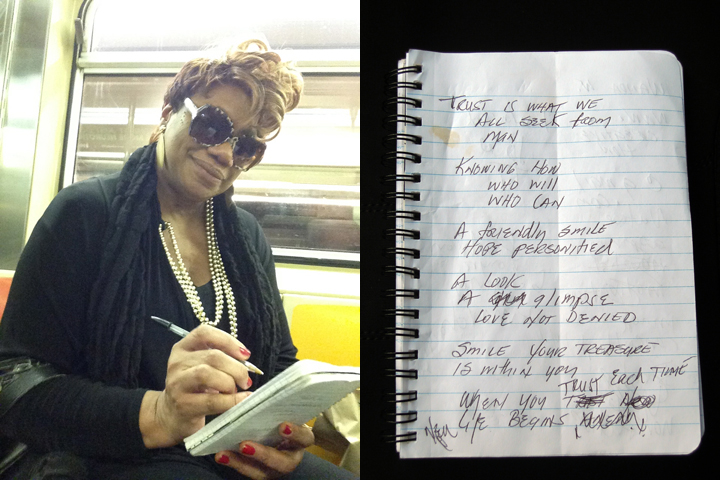 TRUST IS WHAT WE
ALL SEEK FROM
MAN
KNOWING HOW
WHO WILL
WHO CAN
A friendly SMILE
HOPE PERSONIFIED
A LOOK
A glimpse
LOVE NOT DENIED
SMILE YOUR TREASURE
IS within you
TRUST EACH TIME
WHEN YOU
New life BEGINS